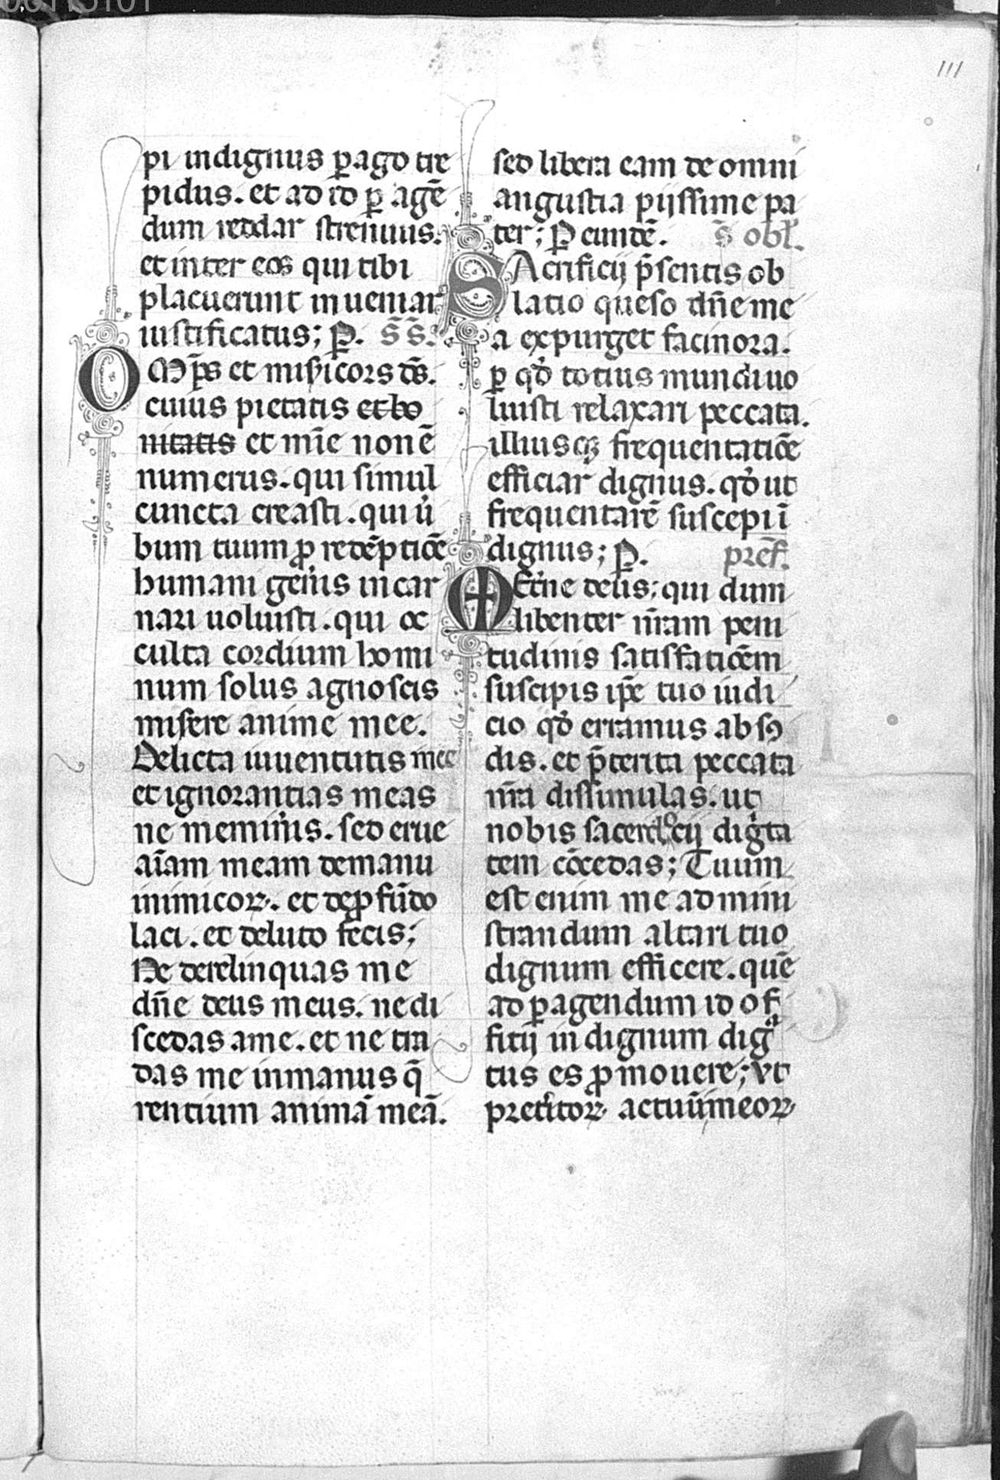 111
pi indignus ꝑago tre
pidus. et ad id ꝑ agē
dum reddar strenuus.
et inter eos qui tibi
placuerunt inueniar
iustificatus; P̲. S̄ S̄.
OMp̄s et mis̄icors d̄s.
cuius pietatis et bo
nitatis et mīe non ē
numerus. qui simul
cuncta creasti. qui ū
bum tuum ꝓ redēptiōe
humani gen̄is incar
nari uoluisti. qui oc
culta cordium homi
num solus agnoscis
misere anime mee.
Delicta iuuentutis mee
et ignorantias meas
ne memin̄is. sed erue
aīam meam de manu
inimicoꝝ. et de ꝓfūdo
laci. et de luto fecis;
Ne derelinquas me
dn̄e deus meus. ne di
scedas a me. et ne tra
das me in manus q̄
rentium animā meā.
sed libera eam de omni
angustia piissime pa
ter; P̲ eundē. S̄ obl̄.
SAcrificij p̄sentis ob
latio queso dn̄e me
a expurget facinora.
ꝑ qd̄ totius mundi uo
luisti relaxari peccata.
illiusqꝫ frequentatiōe
efficiar dignus. qd̄ ut
frequentarē suscepi ī
dignus; P̲. pref̄.
Et̄ne deus; qui dum
libenter nr̄am peni
tudinis satisfatiōem
suscipis ip̄e tuo iudi
cio qd̄ erramus absꝯ
dis. et p̄terita peccata
nr̄a dissimulas. ut
nobis sacerdocij dig̃ta
tem cōcedas; Tuum
est enim me ad mini
strandum altari tuo
dignum efficere. quē
ad ꝑagendum id of
fitij indignum dig̃
tus es ꝓmouere; Vt
pret̄itoꝝ actuū meoꝝ